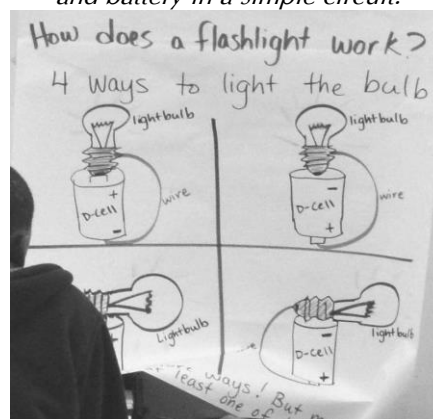 and battery in a simple circuit.
How does a flashlight work?
4 ways to light the bulb
lightbulb
+
D-cell
-
wire
lightbulb
-
D-cell
+
wire
Lightbulb
lightbulb
-
D-cell
+
ways! But
least one of